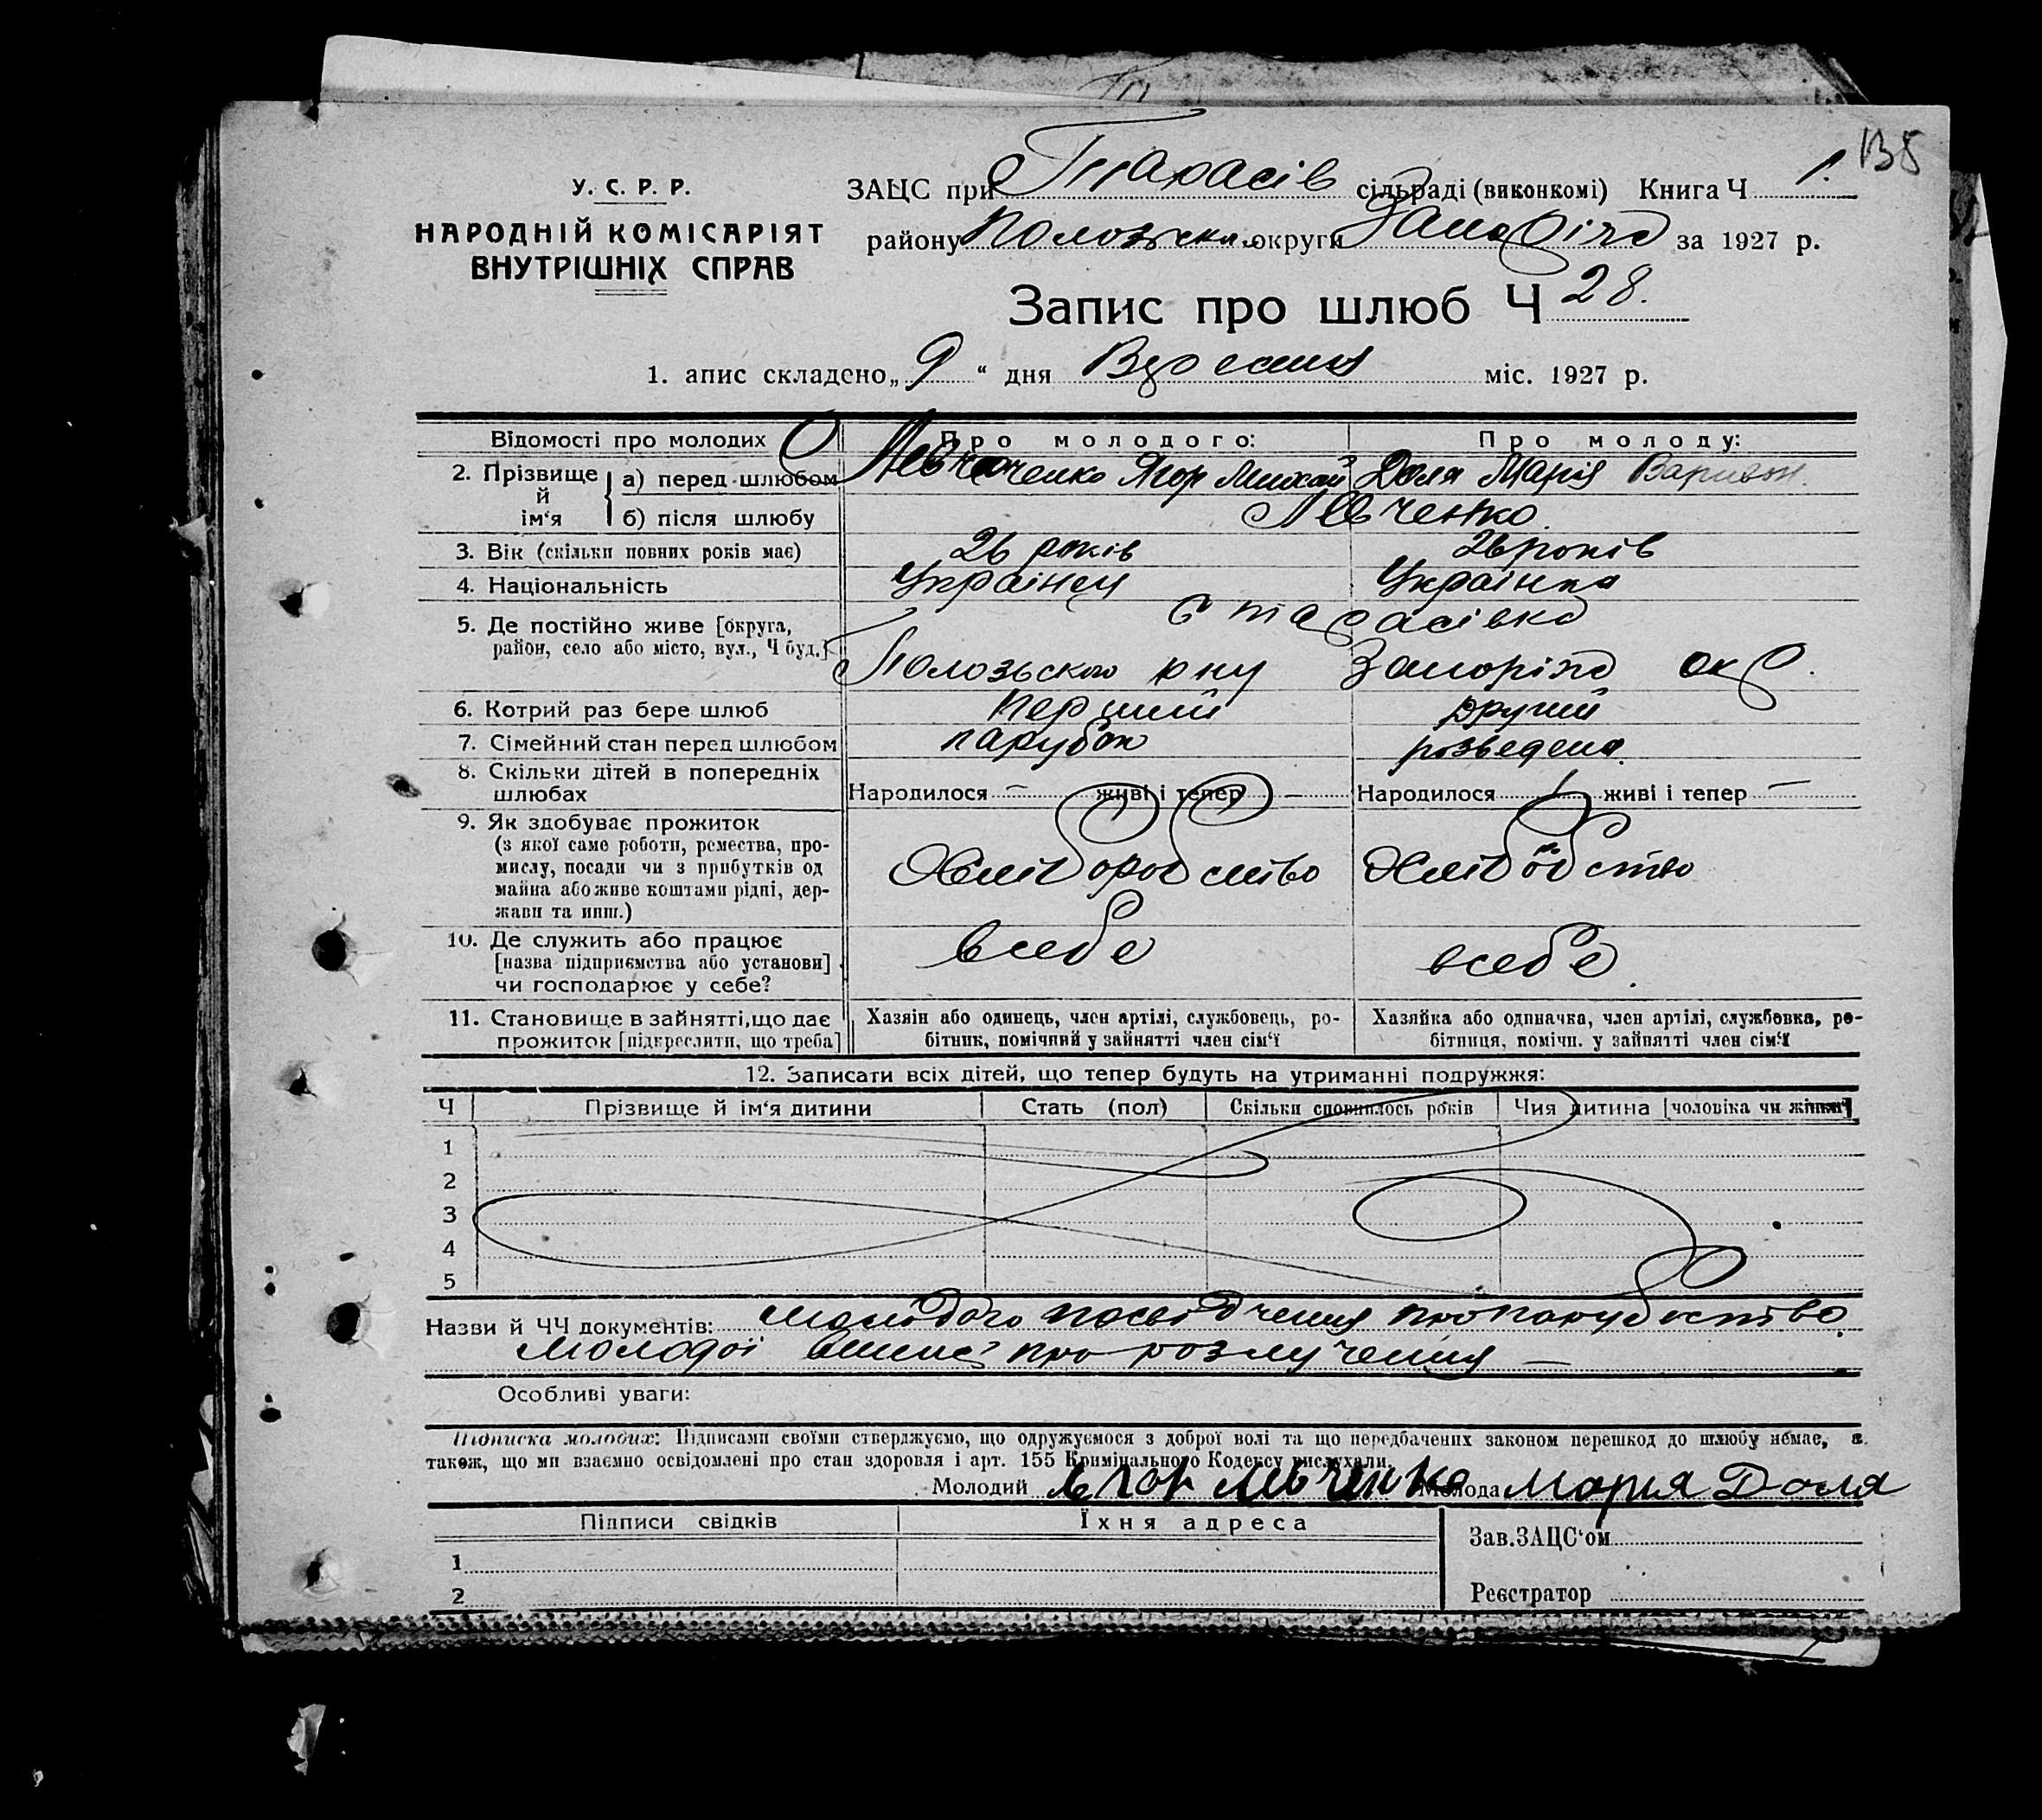 135
У. С. Р. Р.
НАРОДНІЙ КОМІСАРІЯТ
ВНУТРІШНІХ СПРАВ
ЗАЦС при Тарасів сільраді (виконкомі) Книга Ч 1.
району Полозьськ округи Запоріж за 1927 р.
Запис про шлюб Ч 28.
1. апис складено „ 9 “ дня Вересня міс. 1927 р.
Відомості про молодих Про молодого: Про молоду:
2. Прізвище й ім‘я а) перед шлюбом Левченко Ягор Михай Доля Марія
б) після шлюбу Левченко.
3. Вік (скільки повних років має) 26 років 26 років
4. Національність Українец Українка
5. Де постійно живе [округа, район, село або місто, вул., Ч буд.] с Тарасівка
Полозьского рну Запоріж окр.
6. Котрий раз бере шлюб перший другий
7. Сімейний стан перед шлюбом парубок розведена.
8. Скільки дітей в попередніх шлюбах Народилося – живі і тепер – Народилося 1 живі і тепер –
9. Як здобуває прожиток
(з якої саме роботи, ремества, про-
мислу, посади чи з прибутків од
майна або живе коштами рідні, дер-
жави та инш.) Хліборобство Хлібобство
10. Де служить або працює
[назва підприємства або установи]
чи господарює у себе? в себе в себе.
11. Становище в зайнятті, що дає
прожиток [підкреслити, що треба]
Хазяін або одинець, член артілі, службовець, ро-
бітник, помічний у зайнятті член сім‘ї
Хазяйка або одиначка, член артілі, службовка, ро-
бітниця, помічн. у зайнятті член сім‘ї
12. Записати всіх дітей, що тепер будуть на утриманні подружжя:
Ч Прізвище й ім‘я дитини Стать (пол) Скільки сповнилось років Чия дитина [чоловіка чи жінки]
1
2
3
4
5
Назви й ЧЧ документів: Молодого посвідчення про парубоство
Молодої про розлучення –
Особливі уваги:
Підписка молодих: Підписами своїми стверджуємо, що одружуємося з доброї волі та що передбачених законом перешкод до шлюбу немає, а
також, що ми взаємно освідомлені про стан здоровля і арт. 155 Кримінального Кодексу вислухали.
Молодий Егор Левченко Молода Мария Доля
Підписи свідків Їхня адреса
1
2
Зав.ЗАЦС‘ом
Реєстратор